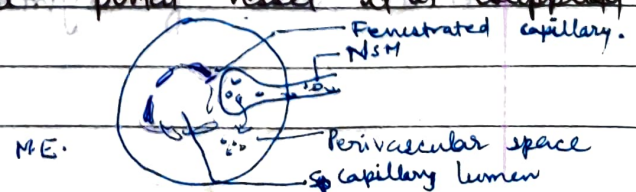 portal vessel
Fenestrated capillary.
NSM
M.E.
Perivascular space
Capillary lumen